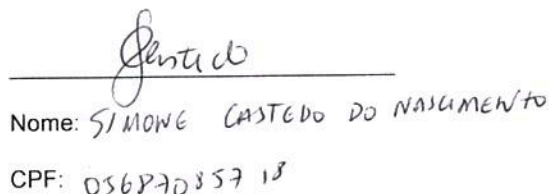 Castedo
Nome: SIMONE CASTEDO DO NASCIMENTO
CPF: 05687085718